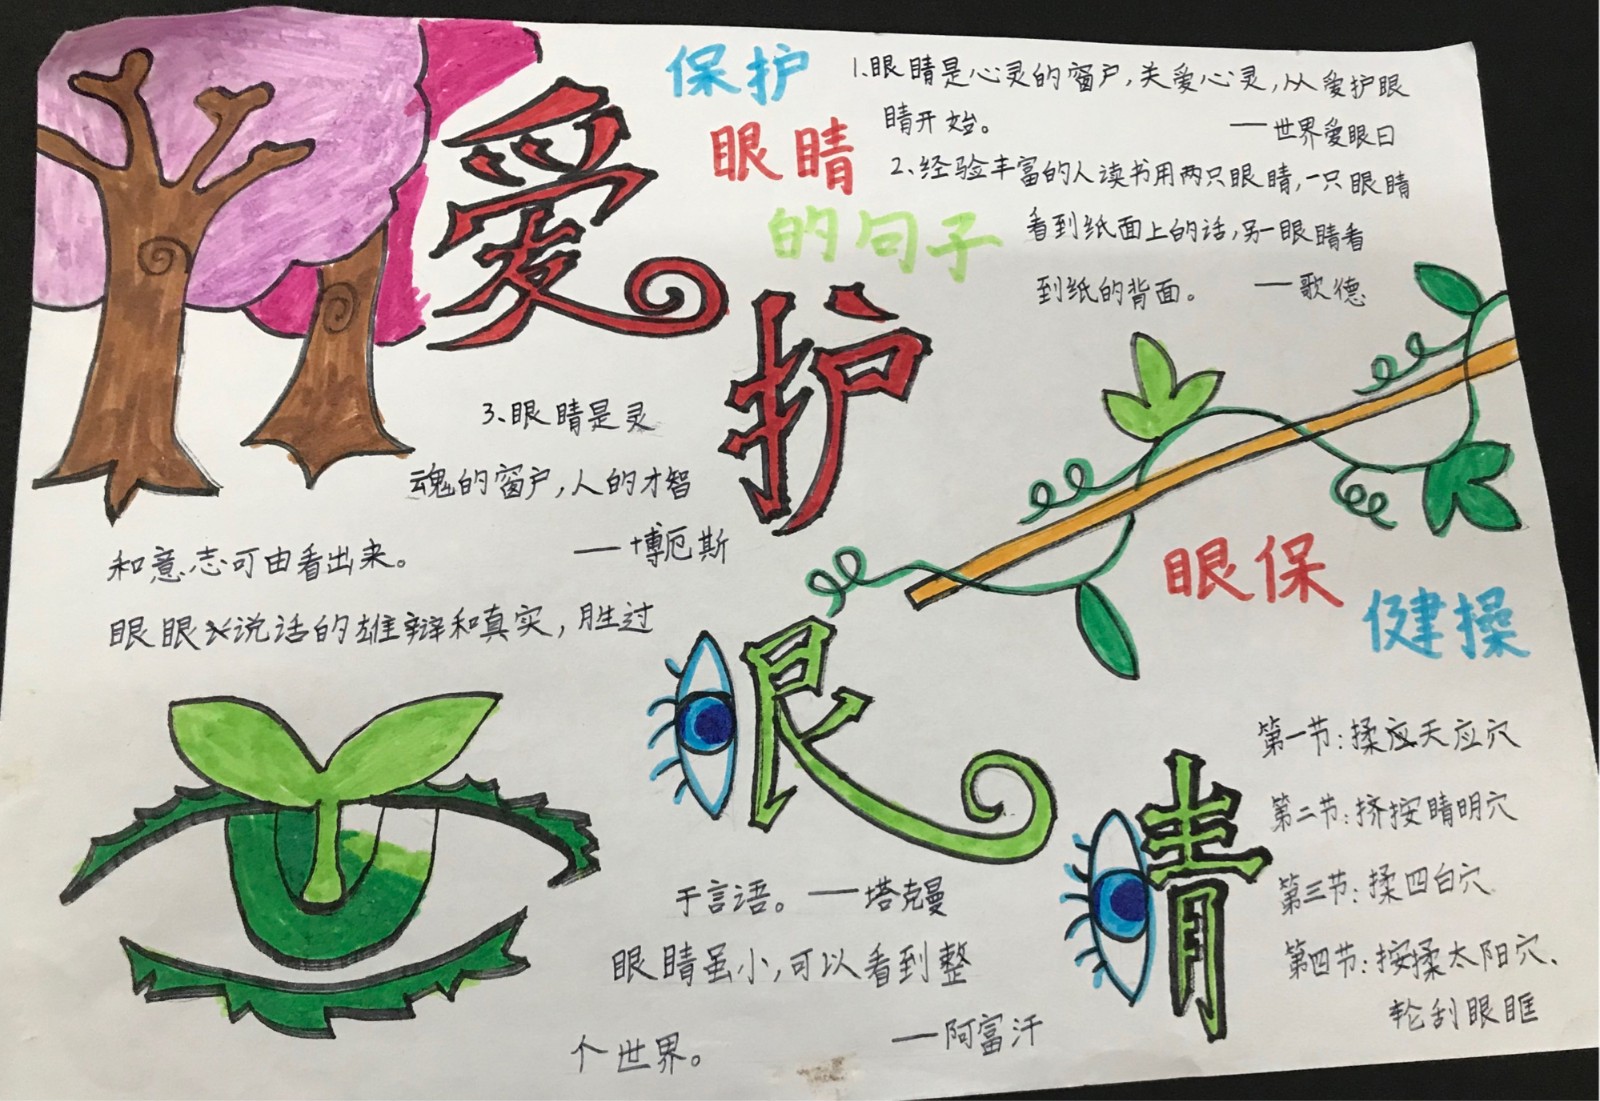 爱护
眼睛
保护
眼睛
的句子
1.眼睛是心灵的窗户,关爱心灵,从爱护眼
睛开始。
——世界爱眼日
2、经验丰富的人读书用两只眼睛,一只眼睛
看到纸面上的话,另一眼睛看
到纸的背面。 ——歌德
3、眼睛是灵
魂的窗户,人的才智
和意志可由看出来。 ——博厄斯
眼眼说话的雄辩和真实,胜过
于言语。——塔克曼
眼睛虽小,可以看到整
个世界。 ——阿富汗
眼保
健操
第一节:揉天应穴
第二节:挤按睛明穴
第三节:揉四白穴
第四节:按揉太阳穴、
轮刮眼眶